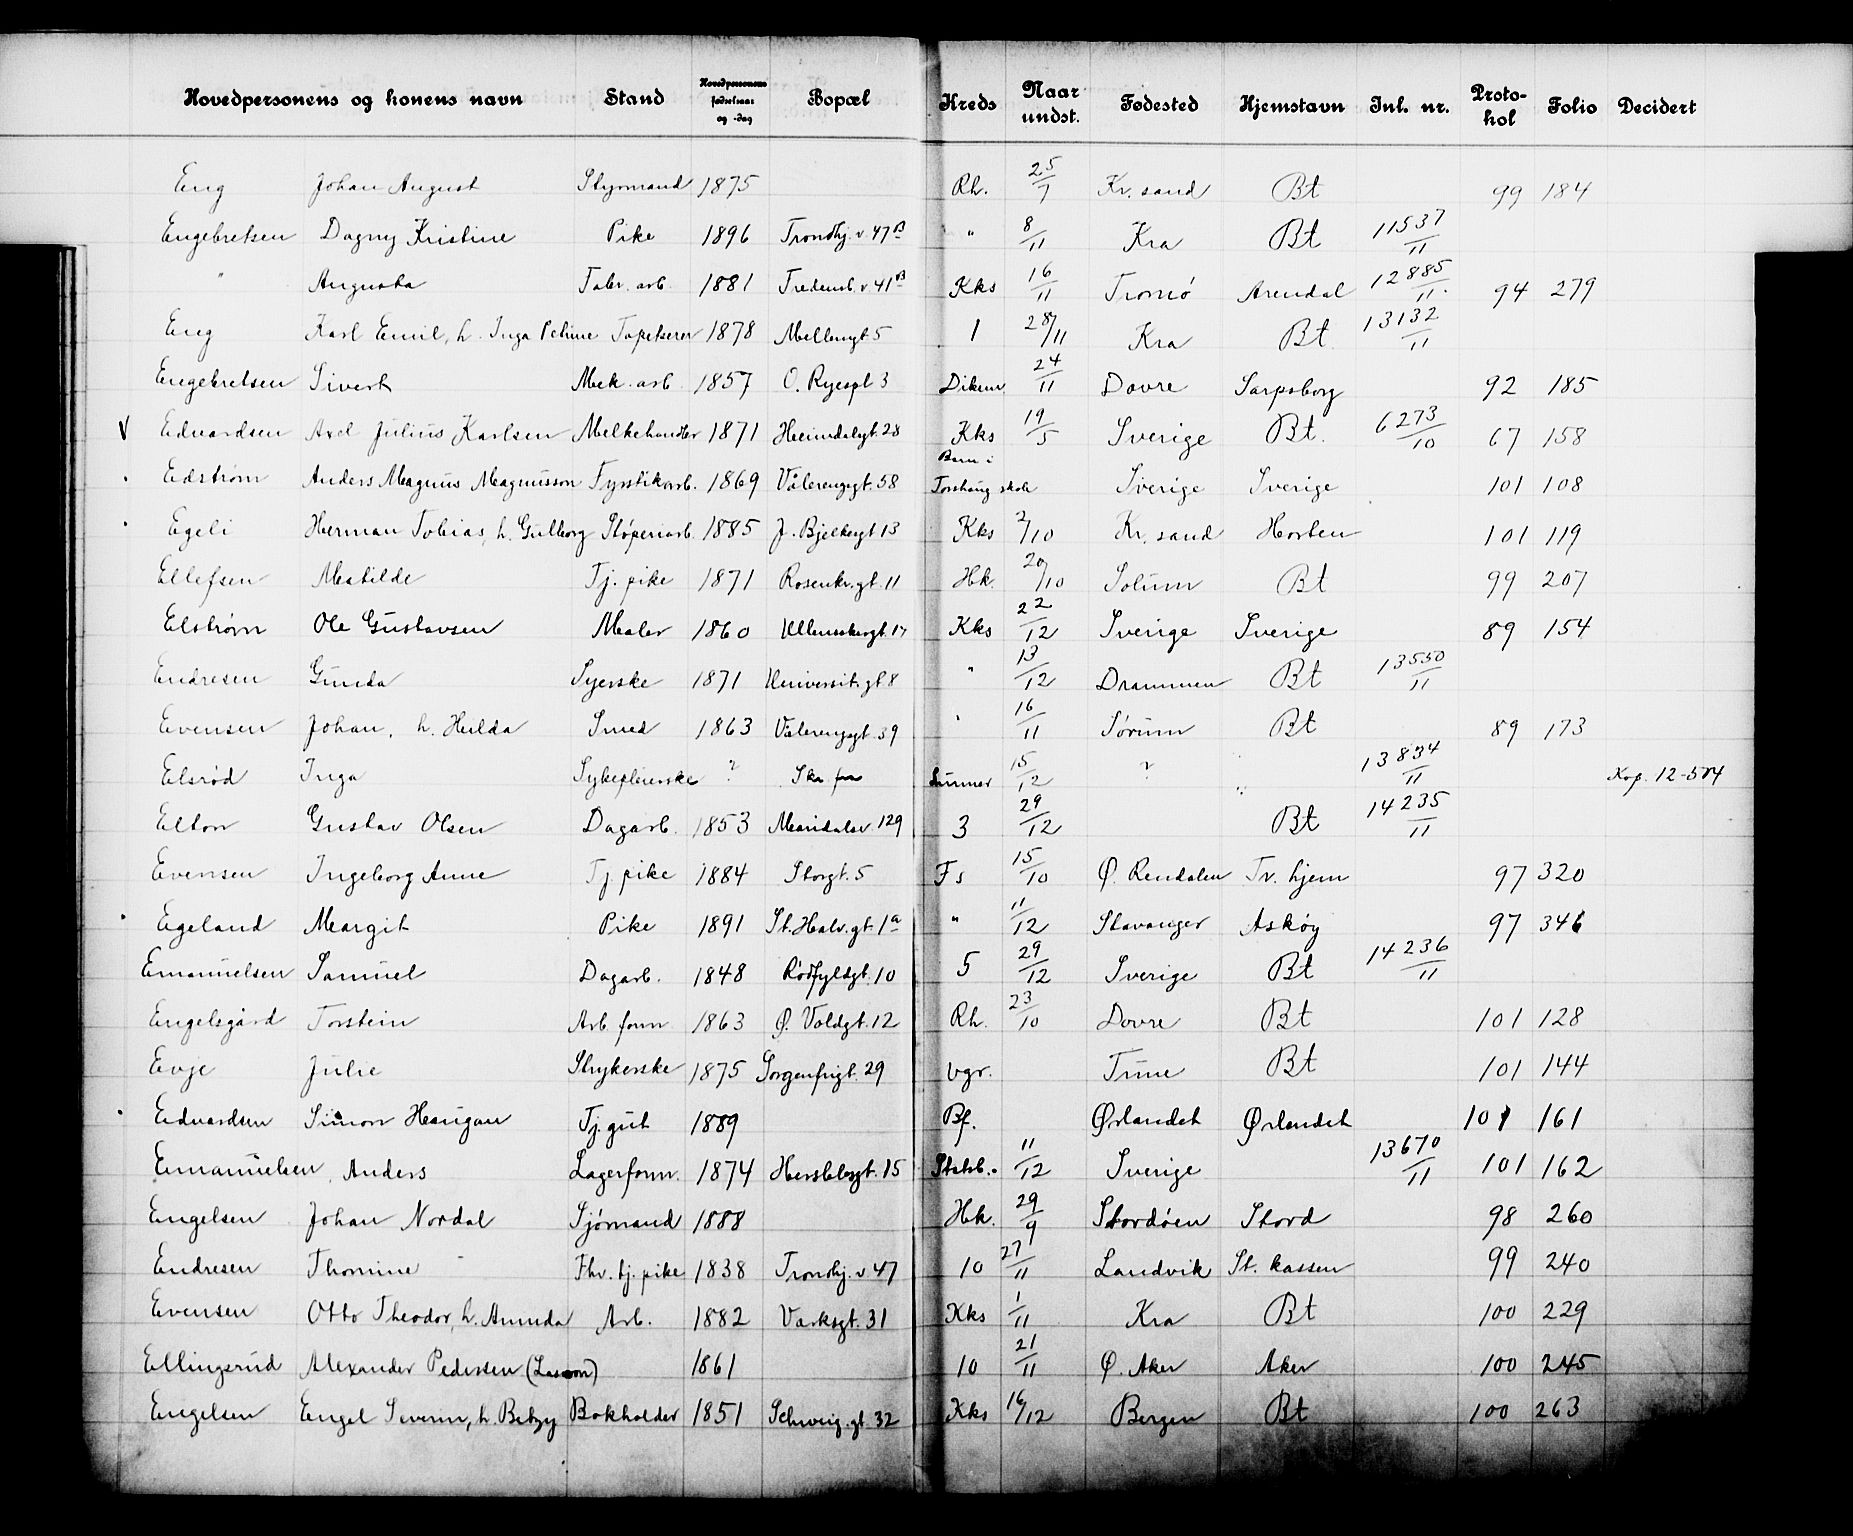 Hovedpersonens og konens navn Stand Hovedpersonens fødselsaar og -dag Bopæl Kreds Naar undst. Fødested Hjemstavn Inl. nr. Protokol Folio Decidert
Eng Johan August Styrmand 1875 Rh. 25/7 Kr. sand Bt 99 184
Engebretsen Dagny Kristine Pike 1896 Trondhj. v. 47 B " 8/11 Kra Bt 11537/11
" Augusta Fabr. arb. 1881 Fredensb. v. 41 B Kks 16/11 Tromø Arendal 12885/11. 94 279
Eng Karl Emil, h. Inga Petrine Tapetserer 1878 Mellemgt 5 1 28/11 Kra Bt 13132/11
Engebretsen Sivert Mek. arb. 1857 O. Ryespl 3 Dikem. 24/11 Dovre Sarpsborg 92 185
V Edvardsen Axel Julius Karlsen Melkehandler 1871 Heimdalsgt. 28 Kks 19/5 Sverige Bt. 6273/10 67 158
Edstrøm Anders Magnus Magnusson Fyrstikarb. 1869 Vålerenggt. 58 Barn i Torshaug skole Sverige Sverige 101 108
Egeli Herman Tobias, h. Gulborg Støperiarb. 1885 J. Bjelkesgt 13 Kks 2/10 Kr. sand Horten 101 119
Ellefsen Matilde Tj. pike 1871 Rosenkr. gt. 11 Hk. 20/10 Solum Bt 99 207
Elstrøm Ole Gustavsen Maler 1860 Ullensakergt. 17 Kks 22/12 Sverige Sverige 89 154
Endresen Gunda Syerske 1871 Universit. gt 8 " 13/12 Drammen Bt 13550/11
Evensen Johan, h. Hulda Smed 1863 Vålerenggt. 39 " 16/11 Sørum Bt 89 173
Elsrød Inga Sykepleierske ? Ska Sunner 15/12 ? 13834/11 Kop. 12-574
Elton Gustav Olsen Dagarb. 1853 Maridalsv. 129 3 29/12 Bt 14235/11
Evensen Ingeborg Anne Tj. pike 1884 Storgt. 5 Fs 15/10 Ø. Rendalen Tv. hjem 97 320
Egeland Margit Pike 1891 St. Halv. gt. 1a " 11/12 Stavanger Askøy 97 346
Emanuelsen Samuel Dagarb. 1848 Rødfyldgt. 10 5 29/12 Sverige Bt 14236/11
Engelsgård Torstein Arb. form 1863 Ø. Voldgt. 12 Rh. 23/10 Dovre Bt 101 128
Evje Julie Strykerske 1875 Sorgenfrigt. 29 Vgr. Tune Bt 101 144
Edvardsen Simon Haugan Tj. gut 1889 Bf. Ørlandet Ørlandet 101 161
Emanuelsen, Anders Lagerform. 1874 Herslebsgt. 15 Statsb. 11/12 Sverige 13670/11 101 162
Engelsen Johan Nordal Sjømand 1888 Hk. 29/9 Stordøen Stord 98 260
Endresen Thomine Fhv. tj. pike 1838 Trondhj. v. 47 10 27/11 Landvik St. kassen 99 240
Evensen Otto Theodor, h. Amnda Arb. 1882 Verksgt. 31 Kks 1/11 Kra Bt 100 229
Ellingsrud Alexander Pedersen (Lasson) 1861 10 21/11 Ø. Aker Aker 100 245
Engelsen Engel Severin, h. Betzy Bokholder 1851 Schweig. gt. 32 Kks 16/12 Bergen Bt 100 263